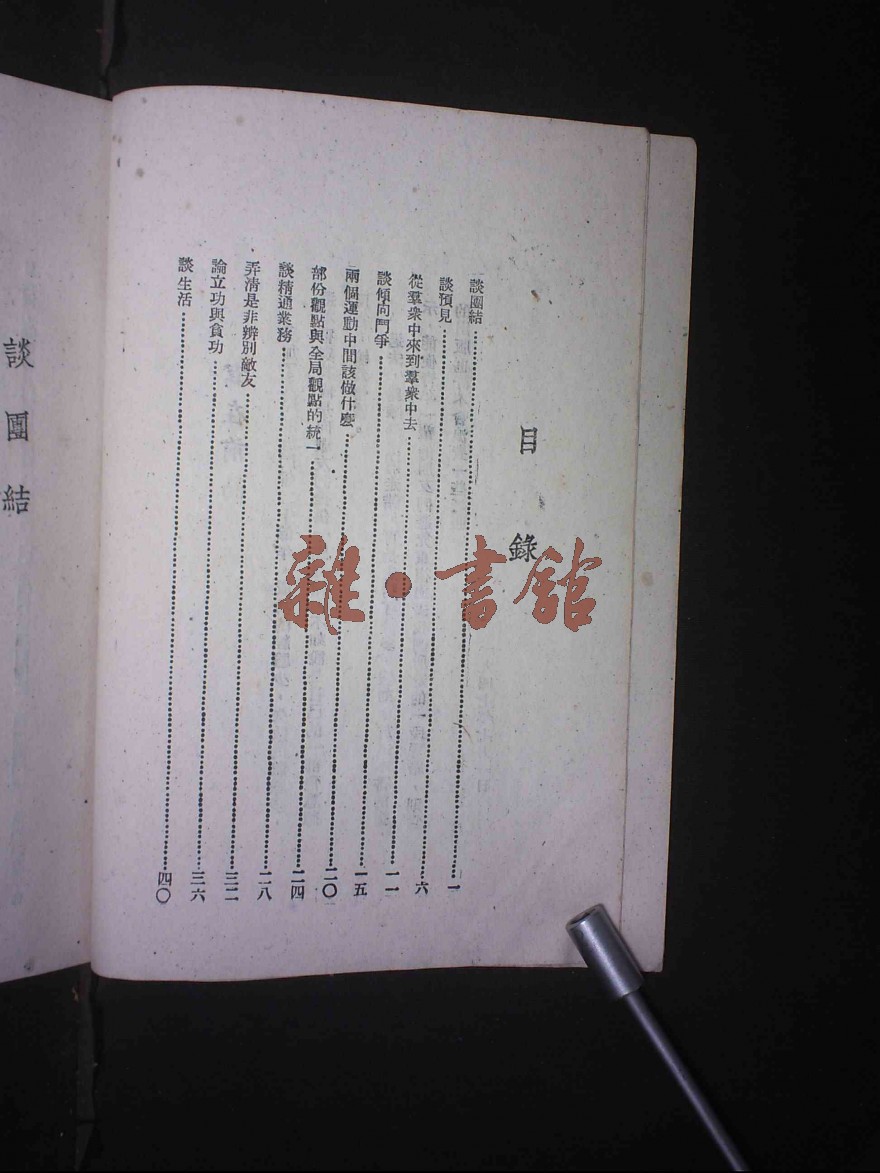 目錄
談團結……一
談預見……六
從羣衆中來到羣衆中去……一一
談傾向鬥爭……一五
兩個運動中間該做什麼……二〇
部份觀點與全局觀點的統一……二四
談精通業務……二八
弄清是非辨別敵友……三二
論立功與貪功……三六
談生活……四〇
談團結
雜·書館